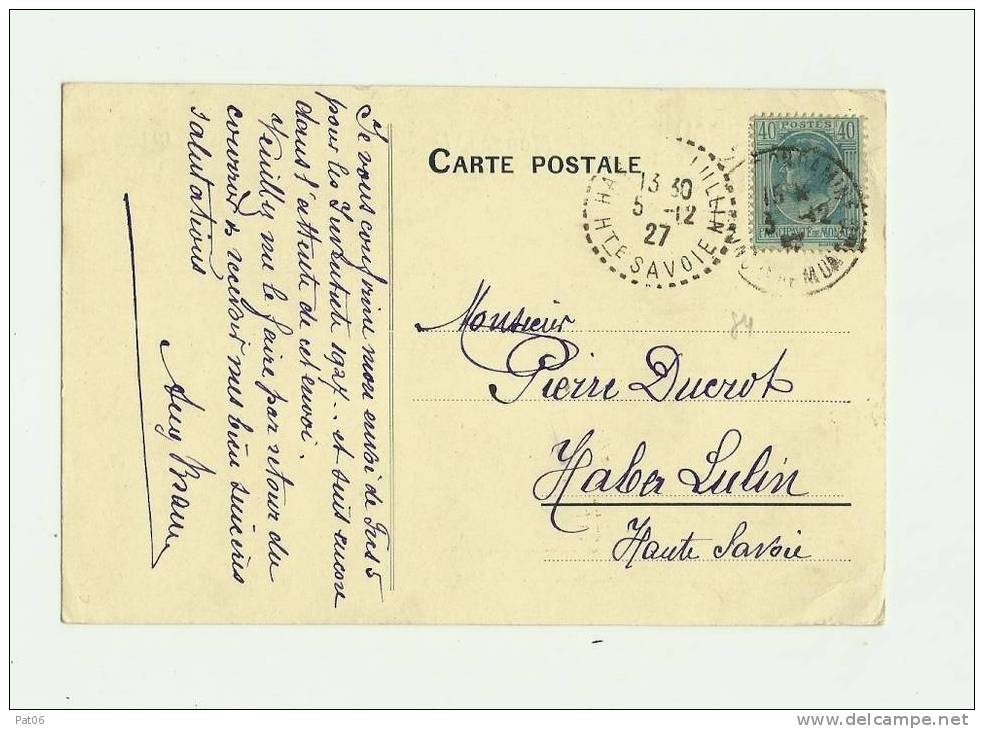 CARTE POSTALE
40 POSTES 40
PRINCIPAUTÉ DE MONACO
LULLIN
13 30
5 -12
27
HTE SAVOIE
15
3 -12
Monsieur
Pierre Ducrot
Haber Lulin
Haute Savoie
84
Je vous confirme mon envoi de Frs 5
pour les 1927.. et suis encore
dans l'attente de cet envoi.
Veuillez me le faire par retour du
courrier & recevez mes bien sincères
salutations
Pat06
www.delcampe.net